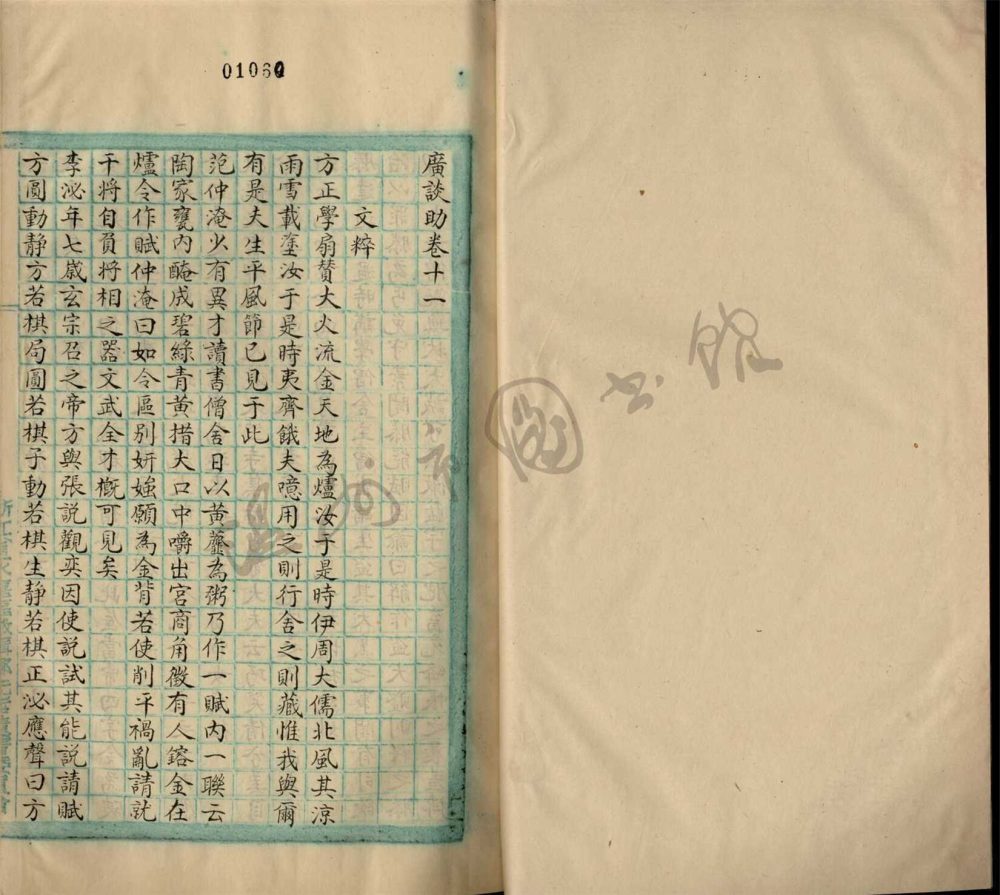 01060
廣談助卷十一
文粹
方正學扇贊大火流金天地為爐汝于是時伊周大儒北風其涼
雨雪載塗汝于是時夷齊餓夫噫用之則行舍之則藏惟我與爾
有是夫生平風節已見于此
范仲淹少有異才讀書僧舍日以黃虀為粥乃作一賦內一聯云
陶家甕內醃成碧綠青黃措大口中嚼出宮商角徵有人鎔金在
爐令作賦仲淹曰如令區別妍媸願為金背若使削平禍亂請就
干將自負將相之器文武全才概可見矣
李泌年七歲玄宗召之帝方與張說觀奕因使說試其能說請賦
方圓動靜方若棋局圓若棋子動若棋生靜若棋正泌應聲曰方
溫州市圖書館